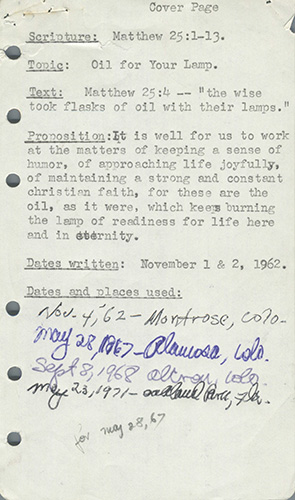 Cover Page
Scripture: Matthew 25:1-13.
Topic: Oil for Your Lamp.
Text: Matthew 25:4 -- "the wise
took flasks of oil with their lamps."
Proposition: It is well for us to work
at the matters of keeping a sense of
humor, of approaching life joyfully,
of maintaining a strong and constant
christian faith, for these are the
oil, as it were, which keeps burning
the lamp of readiness for life here
and in eternity.
Dates written: November 1 & 2, 1962.
Dates and places used:
Nov. 4, '62 - Montrose, Colo.
May 28, 1967 - Alamosa, Colo.
Sept 8, 1968 Colo.
May 23, 1971 - Oakland Park, Fla.
for May 28, 67